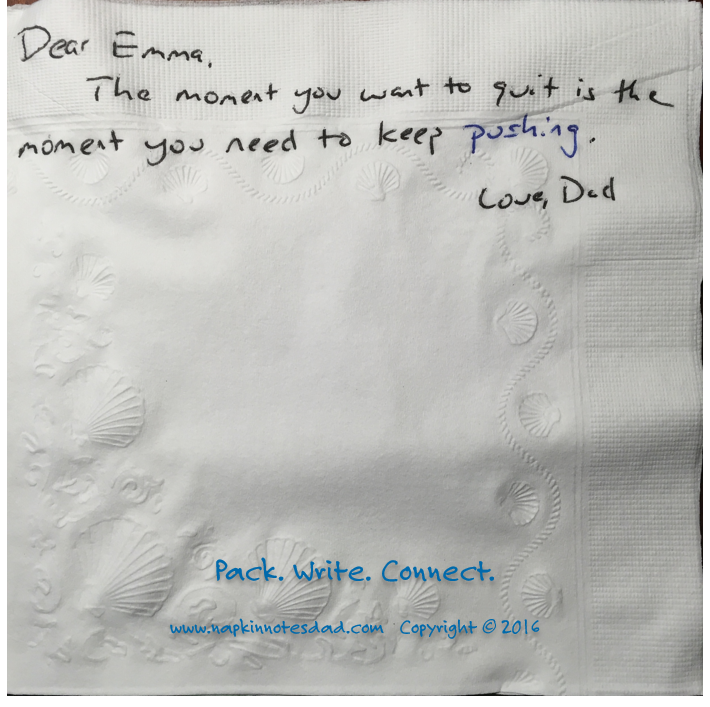 Dear Emma,
The moment you want to quit is the
moment you need to keep pushing.
Love, Dad
Pack. Write. Connect.
www.napkinnotesdad.com Copyright © 2016